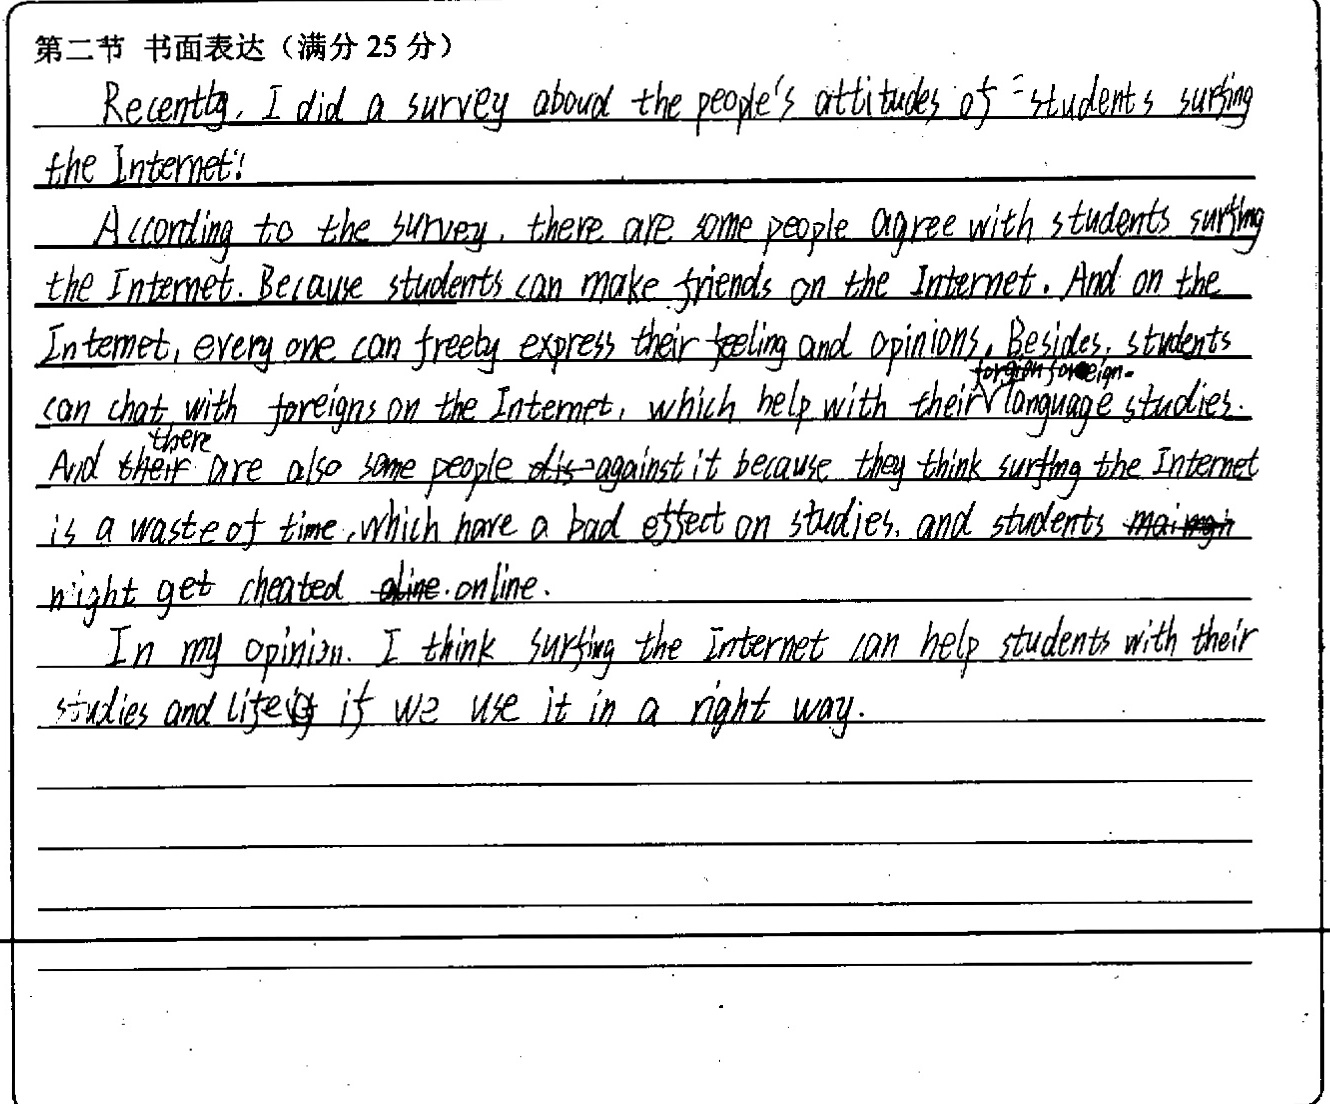 第二节 书面表达（满分 25 分）
Recently, I did a survey aboud the people's attitudes of students surfing
the Internet:
According to the survey, there are some people agree with students surfing
the Internet. Because students can make friends on the Internet. And on the
Internet, every one can freely express their feeling and opinions. Besides, students
foreign
can chat with foreigns on the Internet, which help with their language studies.
there
And are also some people against it because they think surfing the Internet
is a waste of time, which have a bad effect on studies, and students
might get cheated online.
In my opinion. I think surfing the Internet can help students with their
studies and life if we use it in a right way.